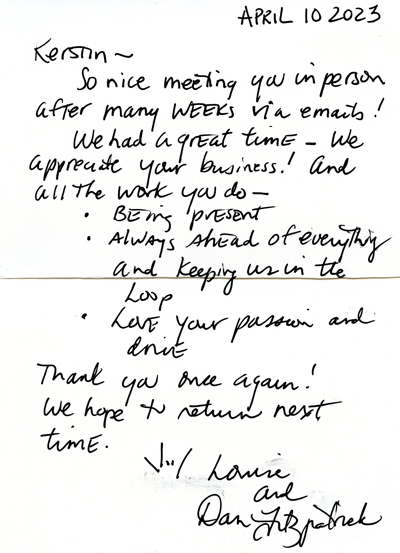 APRIL 10 2023
Kerstin ~
So nice meeting you in person
after many WEEKS via emails!
We had a great time - We
appreciate your business! And
all the work you do -
• Being present
• Always ahead of everything
and keeping us in the
Loop
• Love your passion and
drive
Thank you once again!
We hope to return next
time.
Louise
and
Dan Fitzpatrick